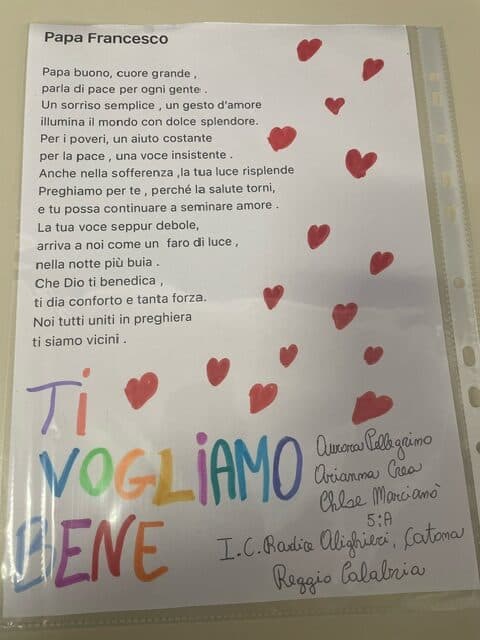 Papa Francesco
Papa buono, cuore grande ,
parla di pace per ogni gente .
Un sorriso semplice , un gesto d'amore
illumina il mondo con dolce splendore.
Per i poveri, un aiuto costante
per la pace , una voce insistente .
Anche nella sofferenza ,la tua luce risplende
Preghiamo per te , perché la salute torni,
e tu possa continuare a seminare amore .
La tua voce seppur debole,
arriva a noi come un faro di luce ,
nella notte più buia .
Che Dio ti benedica ,
ti dia conforto e tanta forza.
Noi tutti uniti in preghiera
ti siamo vicini .
Ti
VOGLiAMO
BENE
Aurora Pellegrino
Arianna Crea
Chloe Marcianò
5:A
I.C. Radice Alighieri, Catona
Reggio Calabria